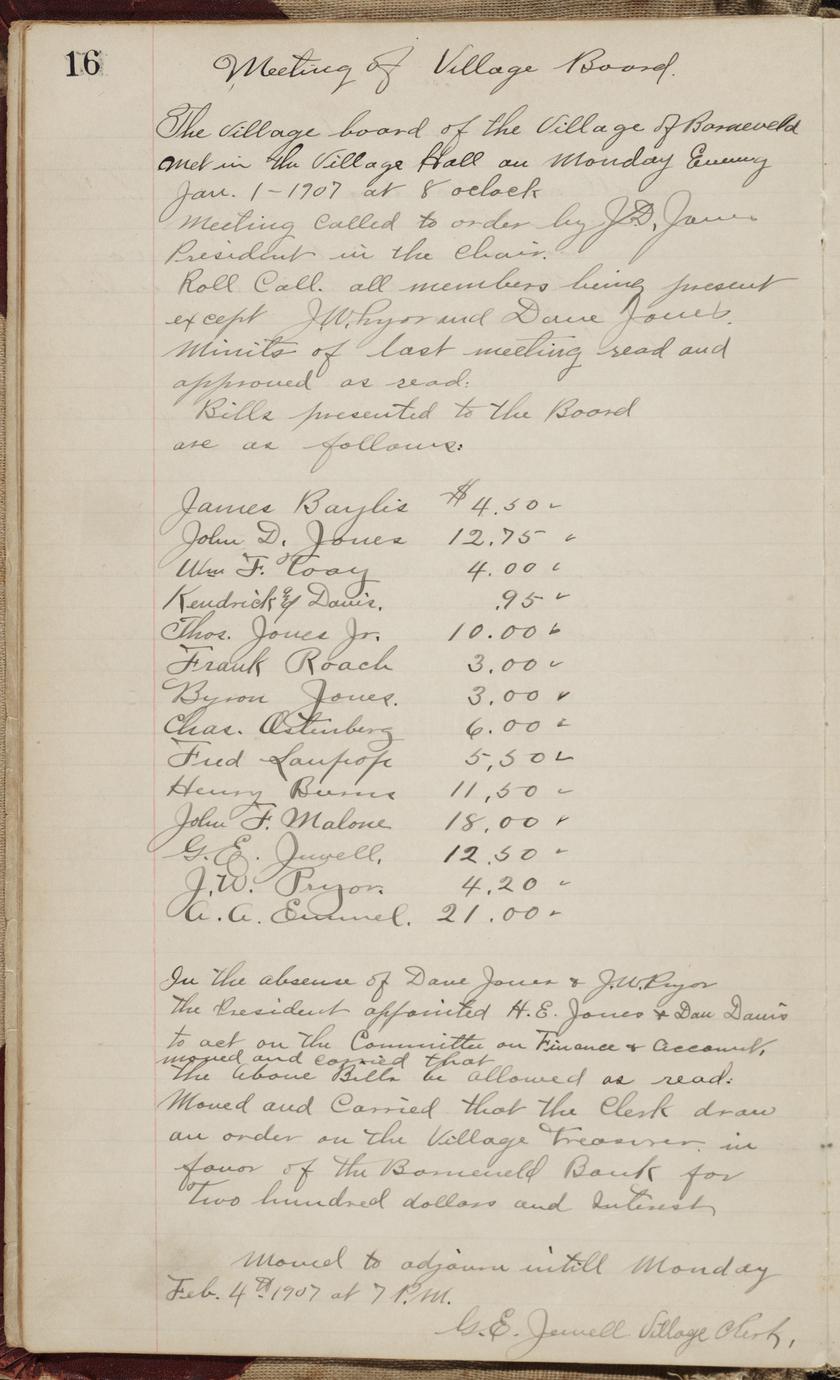 16
Meeting of Village Board.
The Village board of the Village of Barneveld
met in the Village Hall on Monday Evening
Jan. 1 - 1907 at 8 oclock
Meeting called to order by J.D. Jones
President in the Chair.
Roll Call. all members being present
except J.W. Pryor and Dave Jones.
Minits of last meeting read and
approved as read:
Bills presented to the Board
are as follows:
James Baylis $ 4.50
John D. Jones 12.75
Wm F. Toay 4.00
Kendrick & Davis. .95
Thos. Jones Jr. 10.00
Frank Roach 3.00
Byron Jones. 3.00
Chas. Ostenberg 6.00
Fred Laupop 5,50
Henry Burns 11,50
John F. Malone 18.00
G.E. Jewell. 12.50
J.W. Pryor. 4.20
A.A. Emmel. 21.00
In the absense of Dave Jones & J.W. Pryor
the President appointed H.E. Jones & Dan Davis
to act on the Committee on Finance & Account,
moved and carried that
the above Bills be allowed as read:
Moved and Carried that the Clerk draw
an order on the Village Treasurer in
favor of the Barneveld Bank for
Two hundred dollars and Interest
Moved to adjourn intill Monday
Feb. 4th 1907 at 7 P.M.
G.E. Jewell Village Clerk,